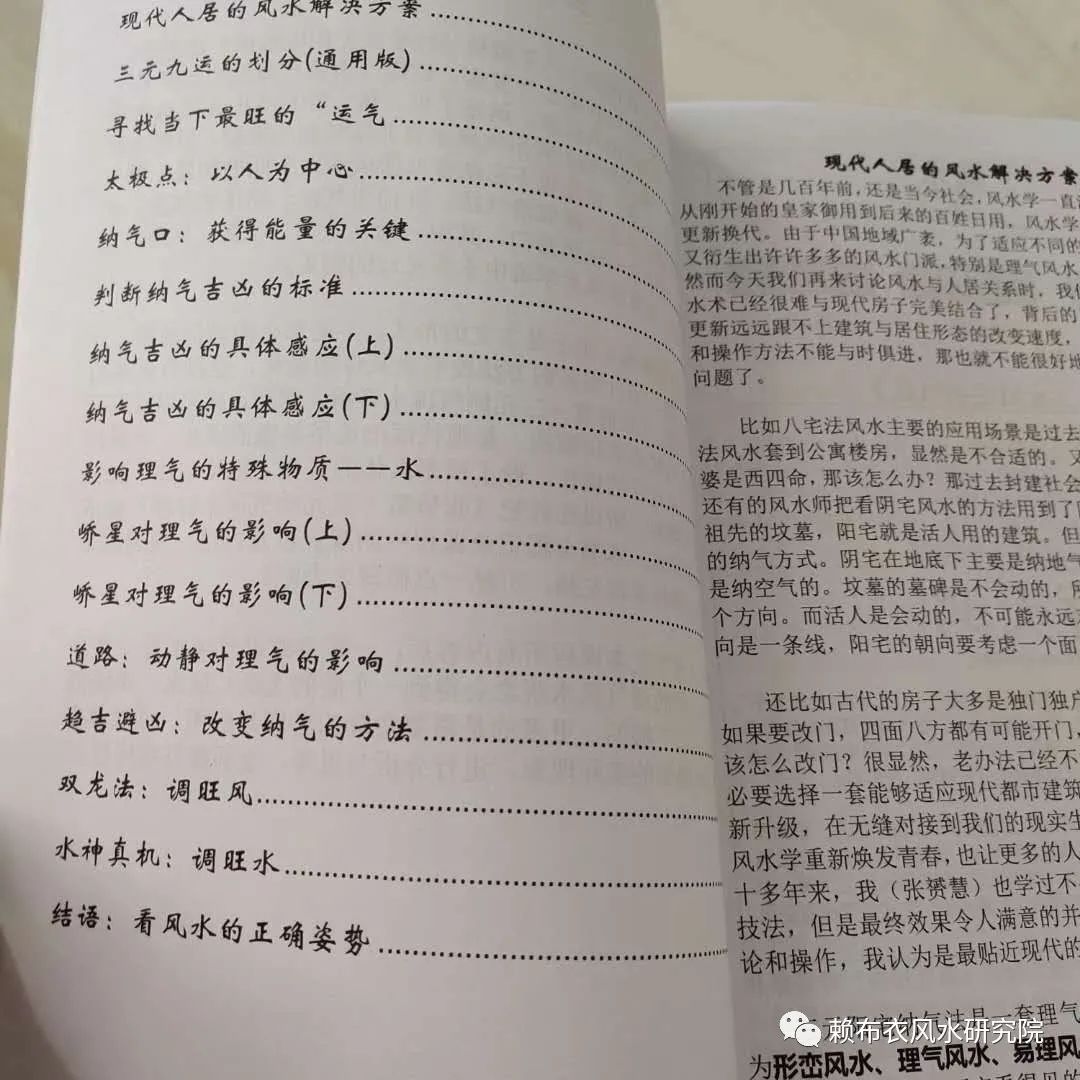 现代人居的风水解决方案
三元九运的划分(通用版)
寻找当下最旺的“运气
太极点：以人为中心
纳气口：获得能量的关键
判断纳气吉凶的标准
纳气吉凶的具体感应(上)
纳气吉凶的具体感应(下)
影响理气的特殊物质——水
峤星对理气的影响(上)
峤星对理气的影响(下)
道路：动静对理气的影响
趋吉避凶：改变纳气的方法
双龙法：调旺风
水神真机：调旺水
结语：看风水的正确姿势
现代人居的风水解决方案
不管是几百年前，还是当今社会，风水学一直
从刚开始的皇家御用到后来的百姓日用，风水学
更新换代。由于中国地域广袤，为了适应不同的
又衍生出许许多多的风水门派，特别是理气风水
然而今天我们再来讨论风水与人居关系时，我
水术已经很难与现代房子完美结合了，背后的
更新远远跟不上建筑与居住形态的改变速度，
和操作方法不能与时俱进，那也就不能很好地
问题了。
比如八宅法风水主要的应用场景是过去
法风水套到公寓楼房，显然是不合适的。又
婆是西四命，那该怎么办？那过去封建社会
还有的风水师把看阴宅风水的方法用到了
祖先的坟墓，阳宅就是活人用的建筑。但
的纳气方式。阴宅在地底下主要是纳地气
是纳空气的。坟墓的墓碑是不会动的，
个方向。而活人是会动的，不可能永远
向是一条线，阳宅的朝向要考虑一个面
还比如古代的房子大多是独门独户
如果要改门，四面八方都有可能开门，
该怎么改门？很显然，老办法已经不
必要选择一套能够适应现代都市建筑
新升级，在无缝对接到我们的现实生
风水学重新焕发青春，也让更多的人
十多年来，我（张赟慧）也学过不
技法，但是最终效果令人满意的并
论和操作，我认为是最贴近现代的
阳宅纳气法是一套理气
为形峦风水、理气风水、易理风
赖布衣风水研究院